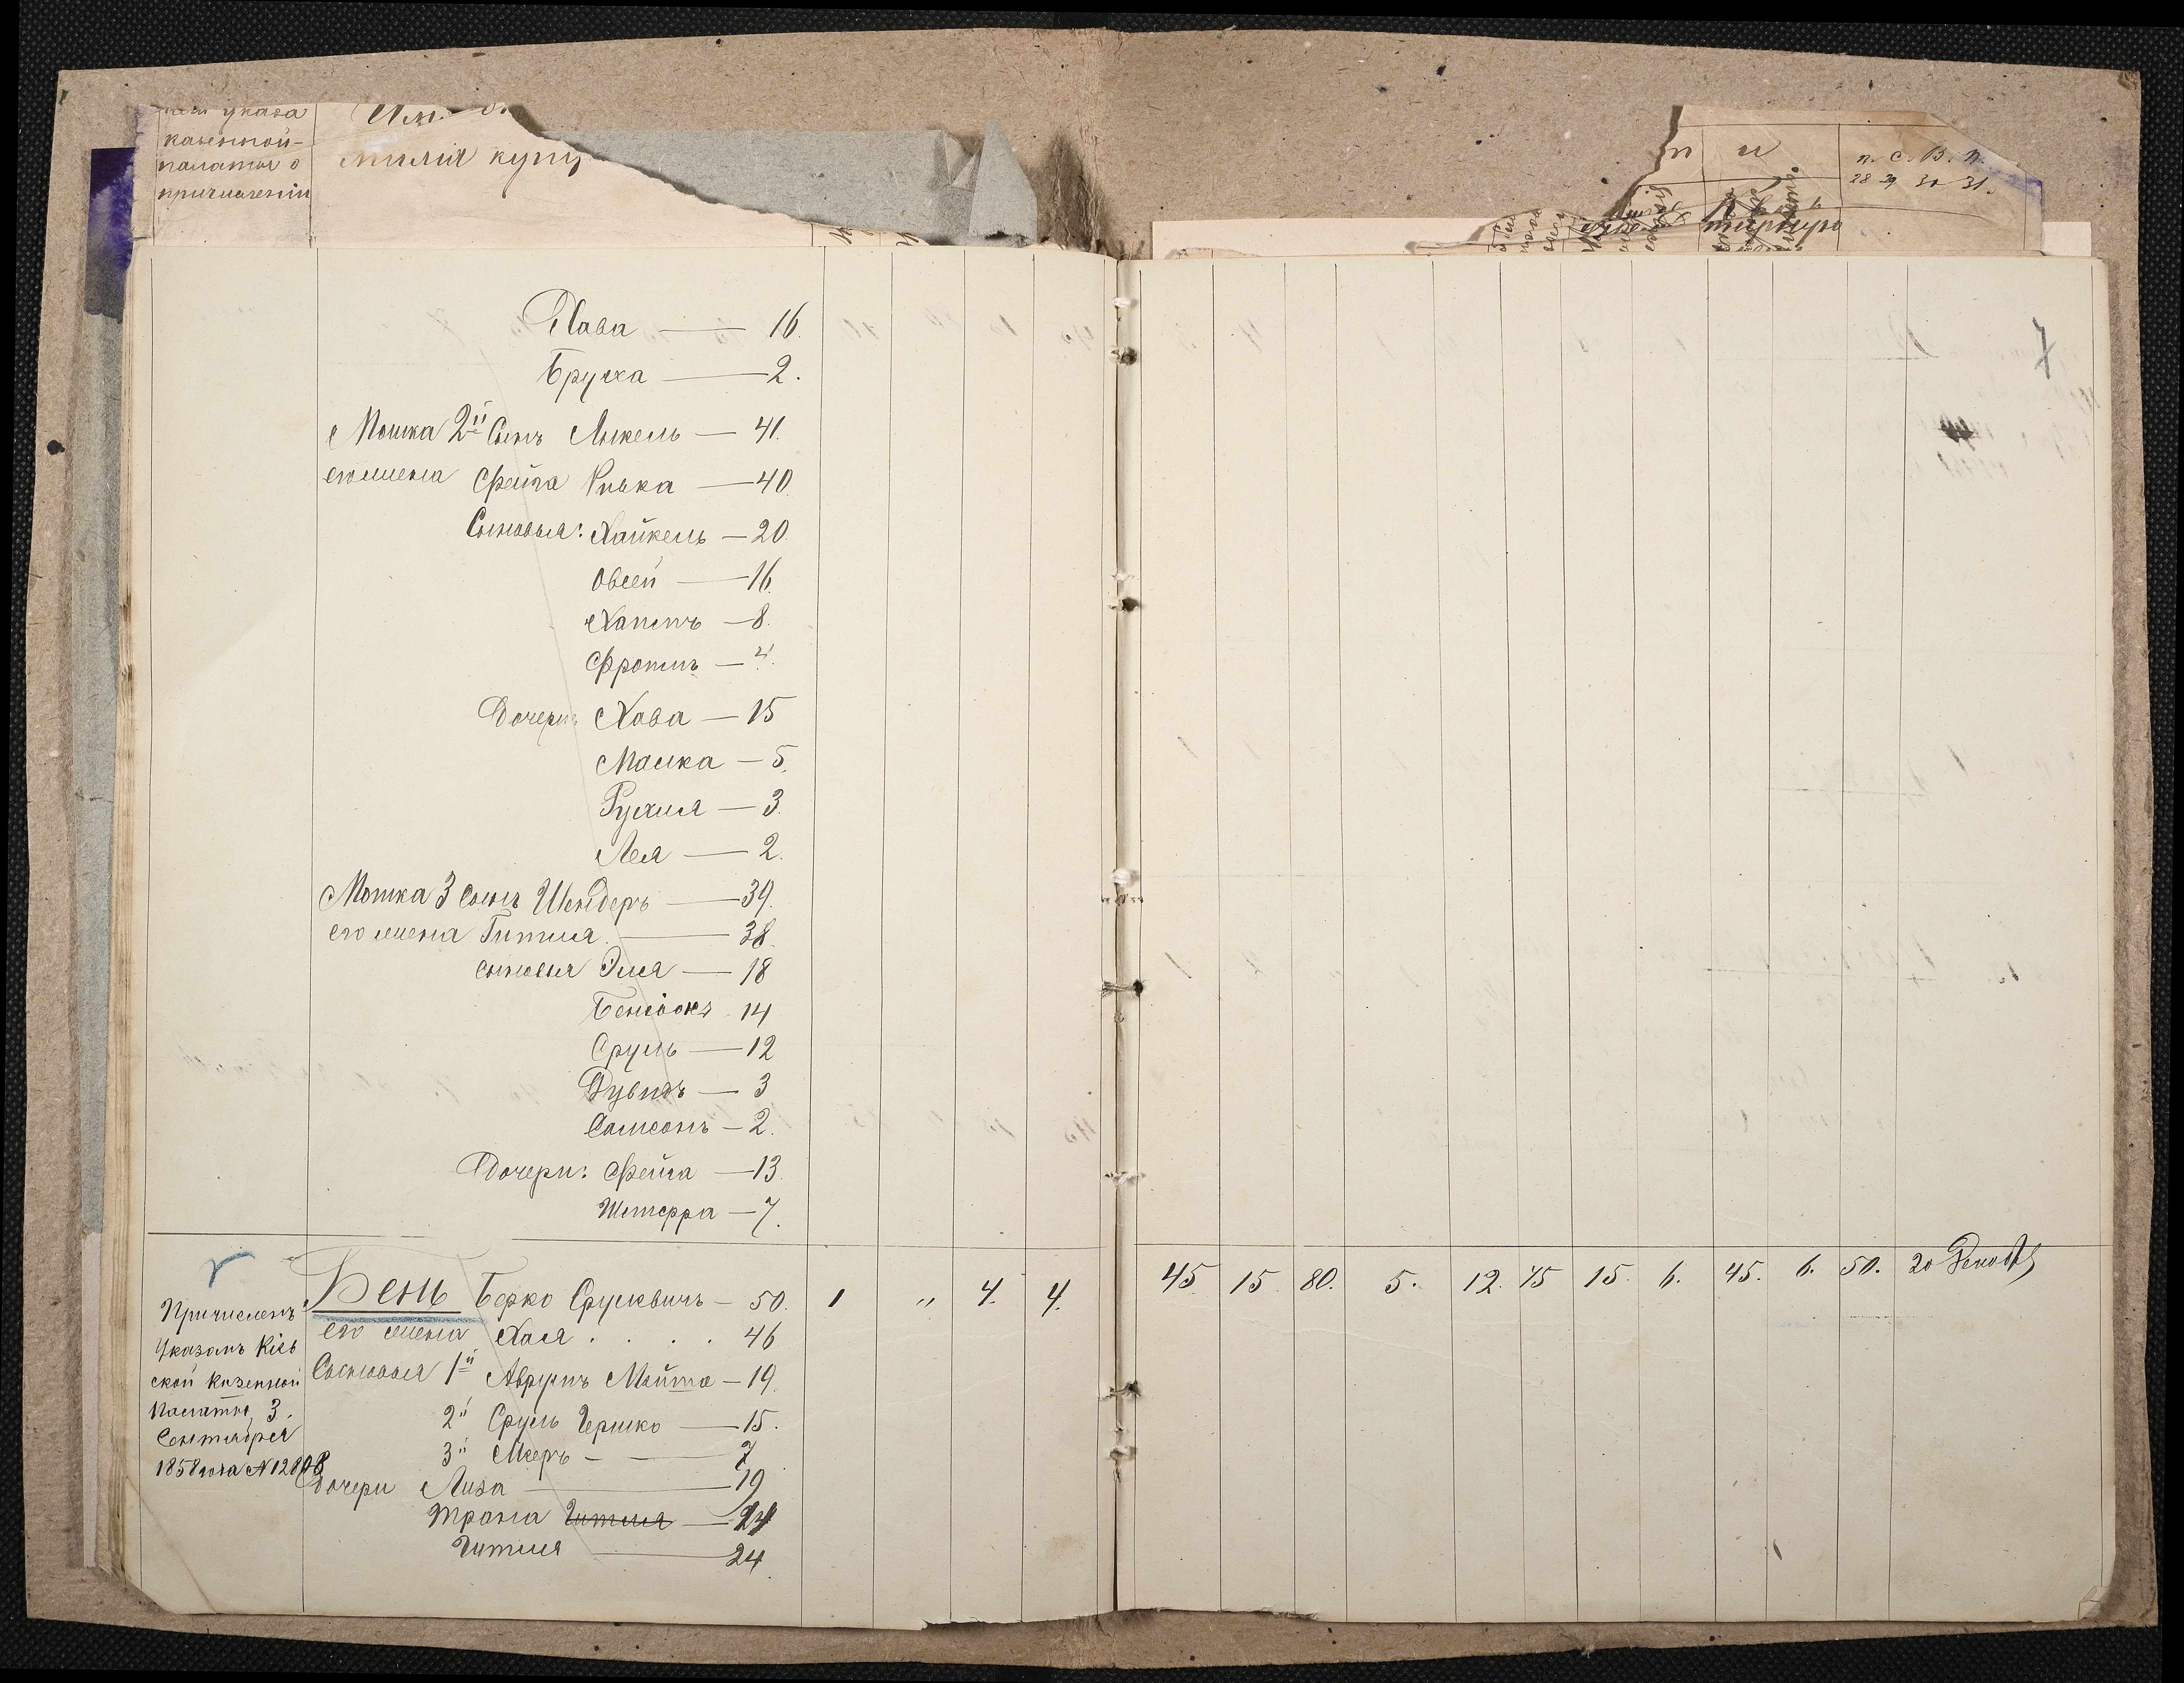 указа
казенной
палаты о
причислении
милія купц
и
п. С. В. п.
28 29 30 31.
7
Хава — 16.
Бруха — 2.
Мошка 2й Сынъ Янкель — 41.
его жена Фейга Ривка — 40.
Сыновья: Хайкель — 20.
Овсей — 16.
Хаимъ — 8.
Фроимъ — 4.
Дочери: Хава — 15
Малка — 5.
Рухля — 3.
Лея — 2.
Мошка 3 Сынъ Шендеръ — 39.
его жена Гитля — 38.
сыновья Эля — 18
Бенціонъ 14
Сруль — 12
Дувидъ — 3
Самсонъ — 2.
Дочери: Фейга — 13.
— 7.
Бень Берко Срулевичъ — 50. 1 " 4. 4. 45 15 80. 5. 12. 75 15. 6. 45. 6. 50. 20 Декабр
его жена Хая . . . . 46
Сыновья 1й Аврумъ — 19.
2й Сруль Гершко — 15.
3й Мееръ — 7
Дочери Лиза — 19
Трана Гитля — 24
Гитля — 24.
Причисленъ
Указомъ Кіев
ской Казенной
Палаты, 3.
Сентября
1858 года № 12808